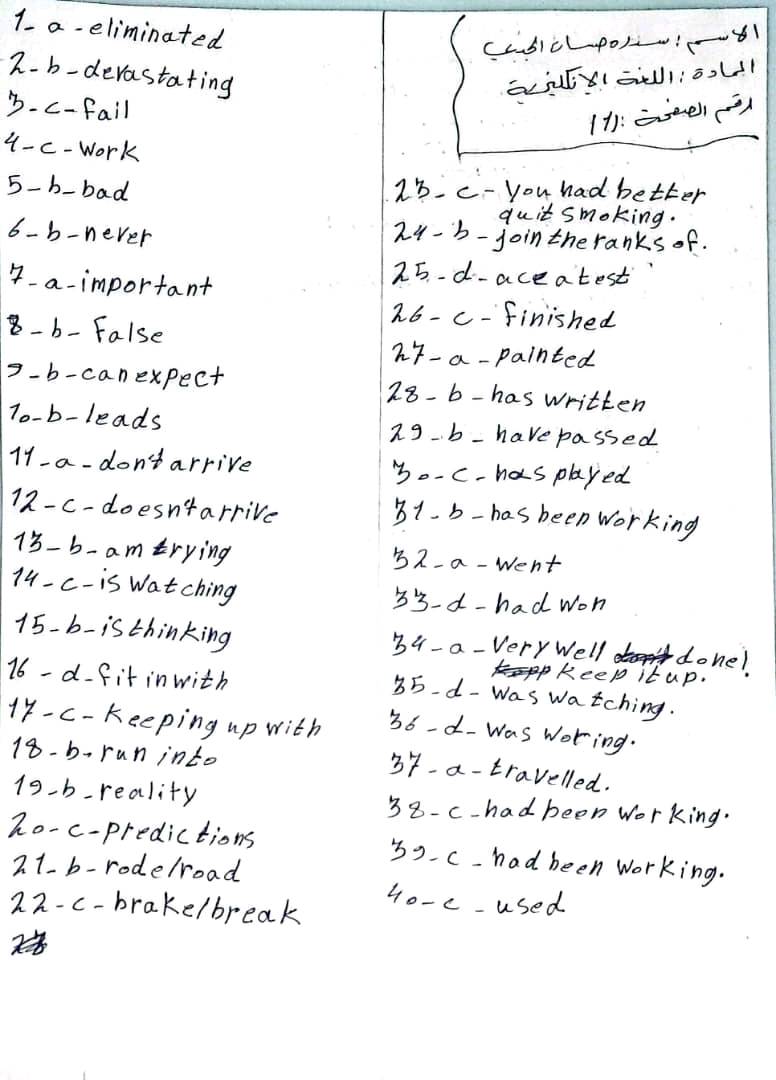 1- a - eliminated
2- b - devastating
3- c - fail
4- c - work
5- b - bad
6- b - never
7- a - important
8- b - False
9- b - can expect
10- b - leads
11- a - don't arrive
12- c - doesn't arrive
13- b - am trying
14- c - is watching
15- b - is thinking
16 - d - fit in with
17 - c - Keeping up with
18 - b - run into
19 - b - reality
20 - c - predictions
21 - b - rode/road
22 - c - brake/break
المادة : اللغة الانكليزية
رقم الصفحة : (1)
23 - c - You had better
quit smoking.
24 - b - join the ranks of.
25 - d - ace a test
26 - c - finished
27 - a - painted
28 - b - has written
29 - b - have passed
30 - c - has played
31 - b - has been working
32 - a - went
33 - d - had won
34 - a - Very well done!
Keep it up.
35 - d - was watching.
36 - d - was woring.
37 - a - travelled.
38 - c - had been working.
39 - c - had been working.
40 - c - used